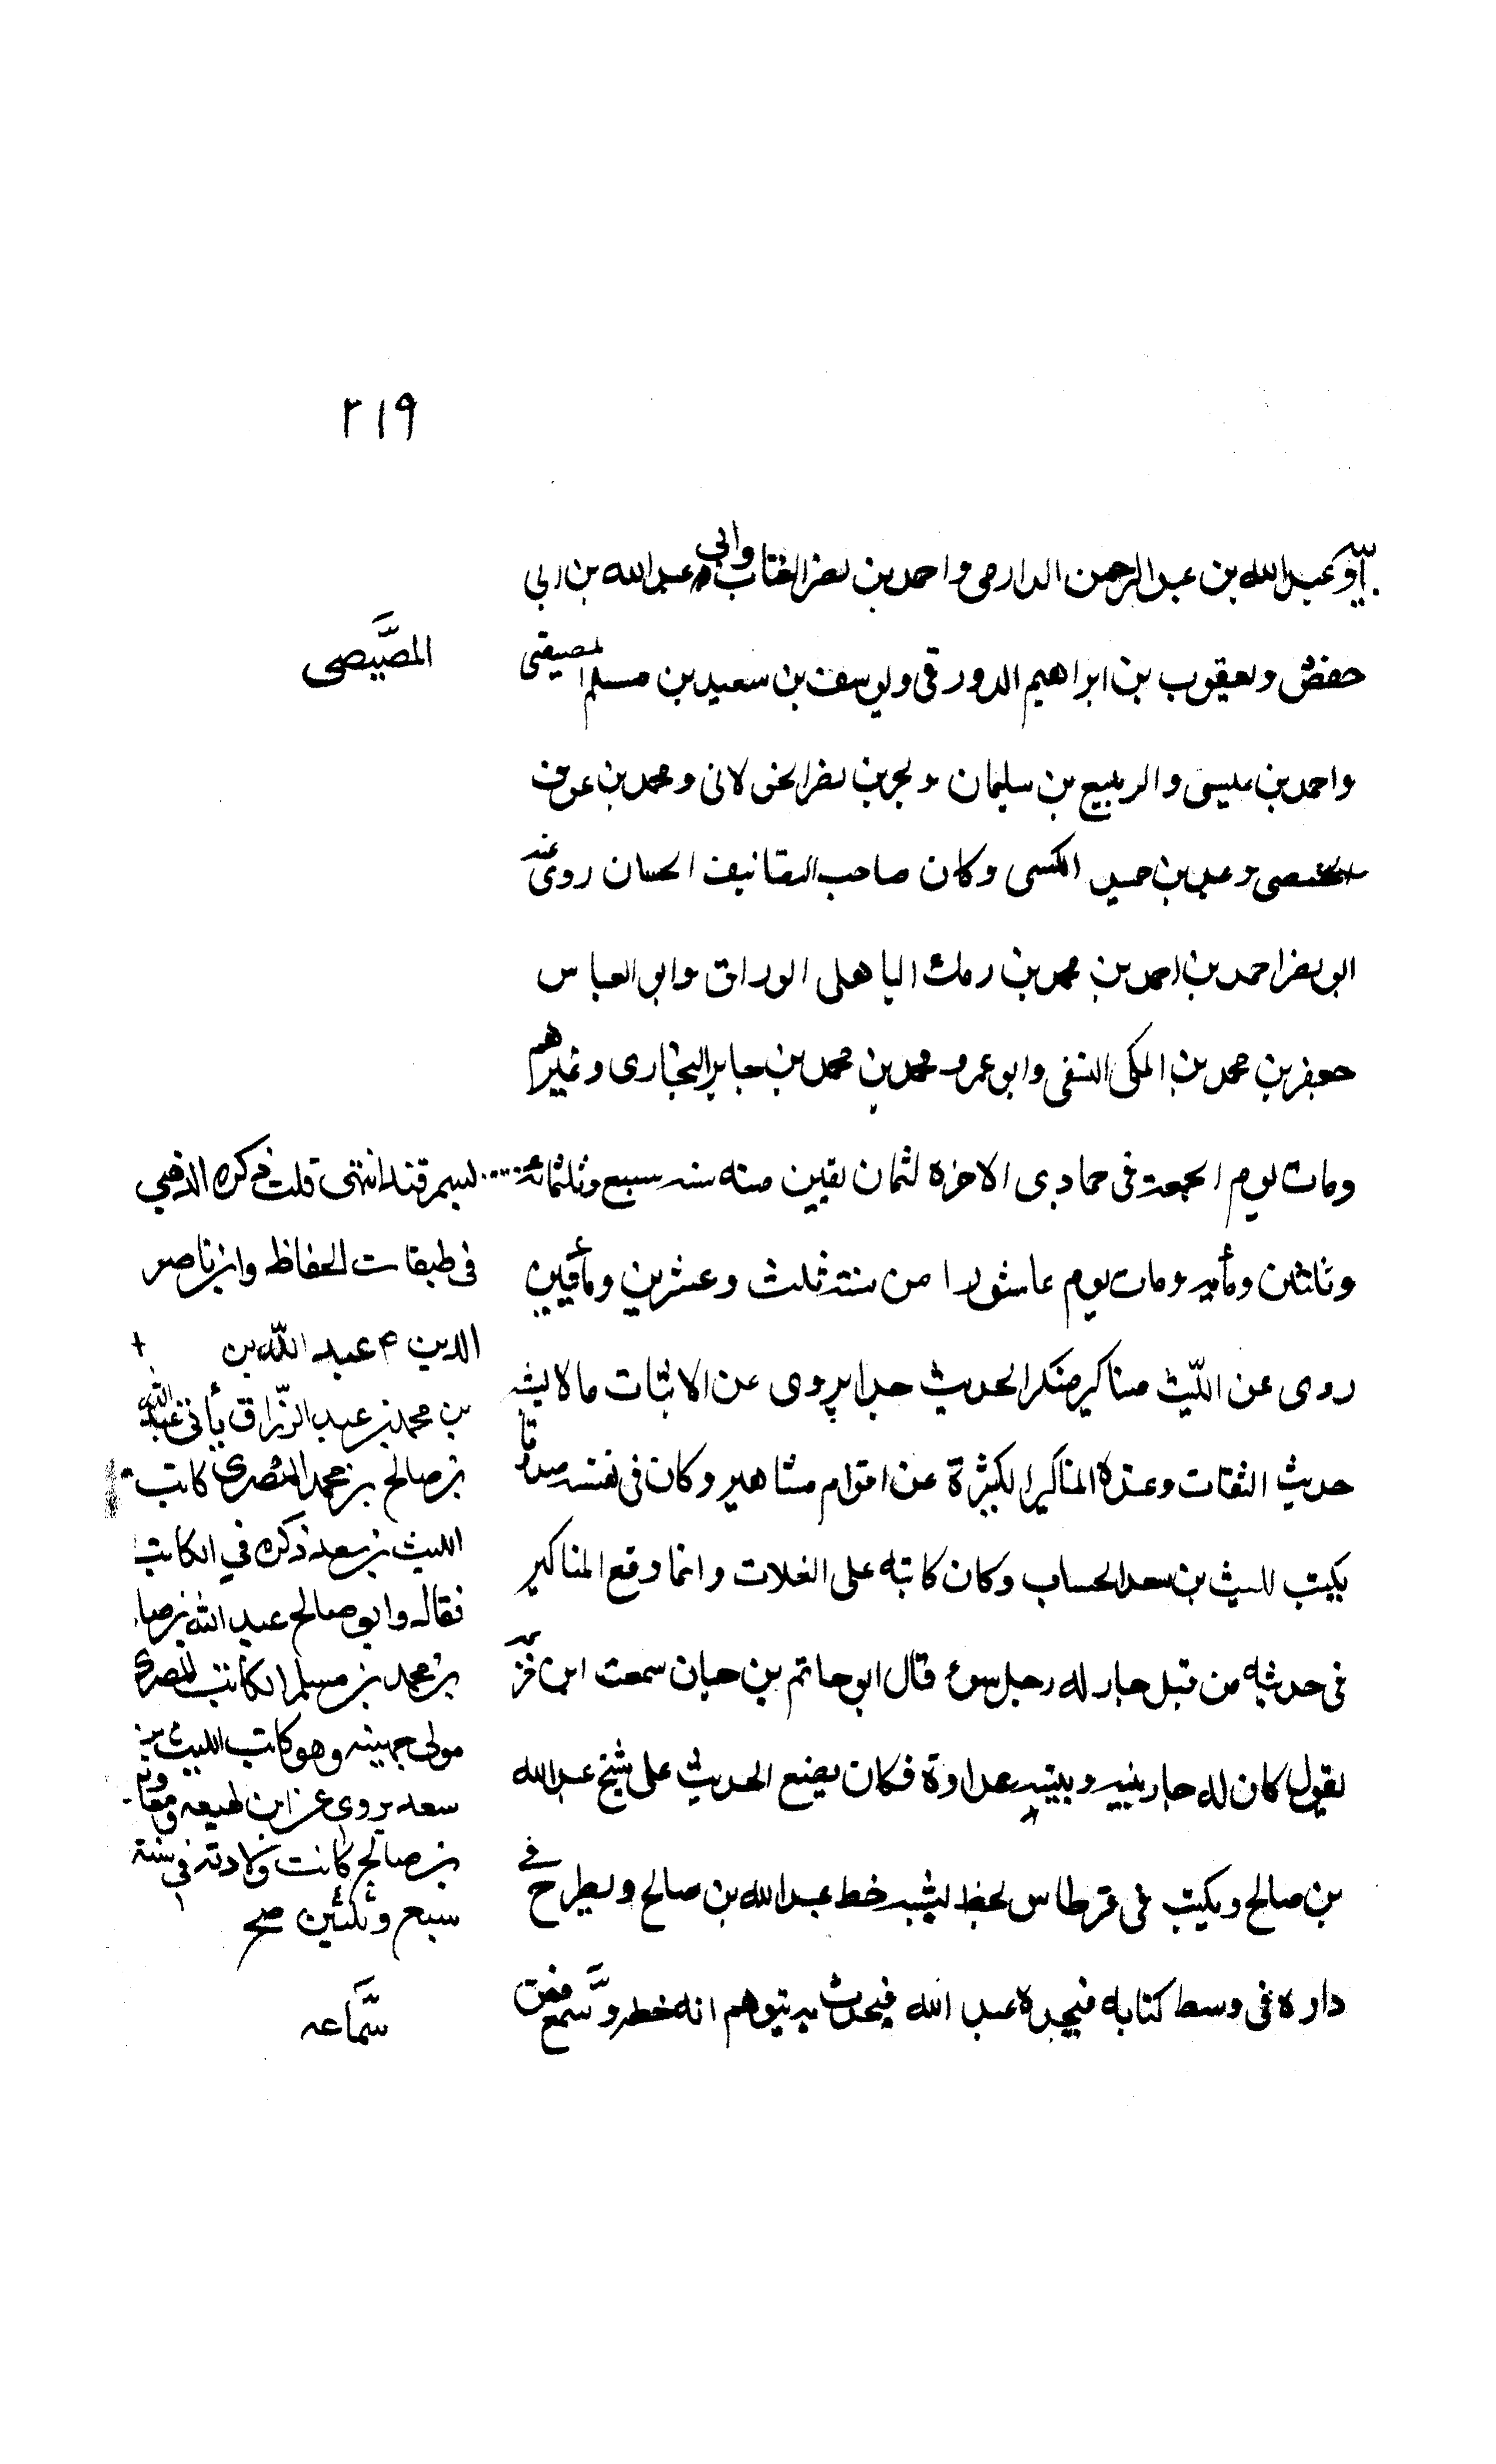 ٢١٩
وعبد الله بن عبد الرحمن الدارمى واحمد بن نصر العتاب وابى عبد الله بن ابى
حفض ويعقوب بن ابراهيم الدورقى ويوسف بن سعيد بن مسلم المصيصى
المصَّيصى
واحمد بن عيسى والربيع بن سليمان وبحر بن نصر الخولانى ومحمد بن عوف
وعبد بن حميد الكسى وكان صاحب التصانيف الحسان روى عنه
ابو نصر احمد بن احمد بن محمد بن الباهلى الوراق وابو العباس
جعفر بن محمد بن المكى النسفى وابو عمرو محمد بن محمد بن جابر البخارى وغيرهم
ومات يوم الجمعة فى جمادى الاخرة لثمان بقين منه سنه سبع وثلثمائة
وثلثين ومأيه ومات يوم عاشورا من سنة ثلث وعشرين ومأتين
روى عن الليّث مناكير منكر الحديث جدا يروى عن الاثبات مالا يشبه
حديث الثقات وعنده المناكير الكثيرة عن اقوام مشاهير وكان فى نفسه صدوقا
يكتب لليث بن سعد الحساب وكان كاتبه على الغلات وانما وقع المناكير
فى حديثه من قبل جار له رجل سوء قال ابو حاتم بن حبان سمعت ابن خزيمة
يقول كان له جار بينه وبينه عداوة فكان يضع الحديث على شيخ عبد الله
بن صالح ويكتب فى قرطاس بخط يشبه خط عبد الله بن صالح ويطرح فى
داره فى وسط كتابه فيجده عبد الله فيحدث به يتوهم انه خطه وسمع فمن
بسمرقند انتهى قلت ذكره الذهبي
فى طبقات الحفاظ وابن ناصر
الدين عبد الله بن
بن محمد بن عبد الرزّاق يأتى عبد الله
بن صالح بن محمد المصرى كاتب
الليث بن سعد ذكره في الكاتب
فقال وابو صالح عبد الله بن صا
بن محمد بن مسلم الكاتب المصرى
مولى جهينه وهو كاتب الليث بن
سعد يروى عن ابن لهيعه ومعاوية
بن صالح كانت ولادته في سنة
سبع وثلثين صح
سَّماعه